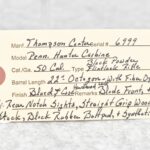 Manf. Thompson Center Serial # 6999
Model Penn. Hunter Carbine
Cal/Ga. .50 Cal. Type Black Powder Flintlock Rifle
Barrel Length 22" Octagon - With Fiber Op
Finish Blued Remarks Blade Front &
Rear Notch Sights, Straight Grip Wood
Stock, Black Rubber Buttpad, & Synthetic